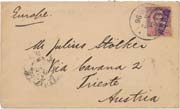 Europe.
M. Julius Stolker
Via Cavana 2
Trieste
Austria